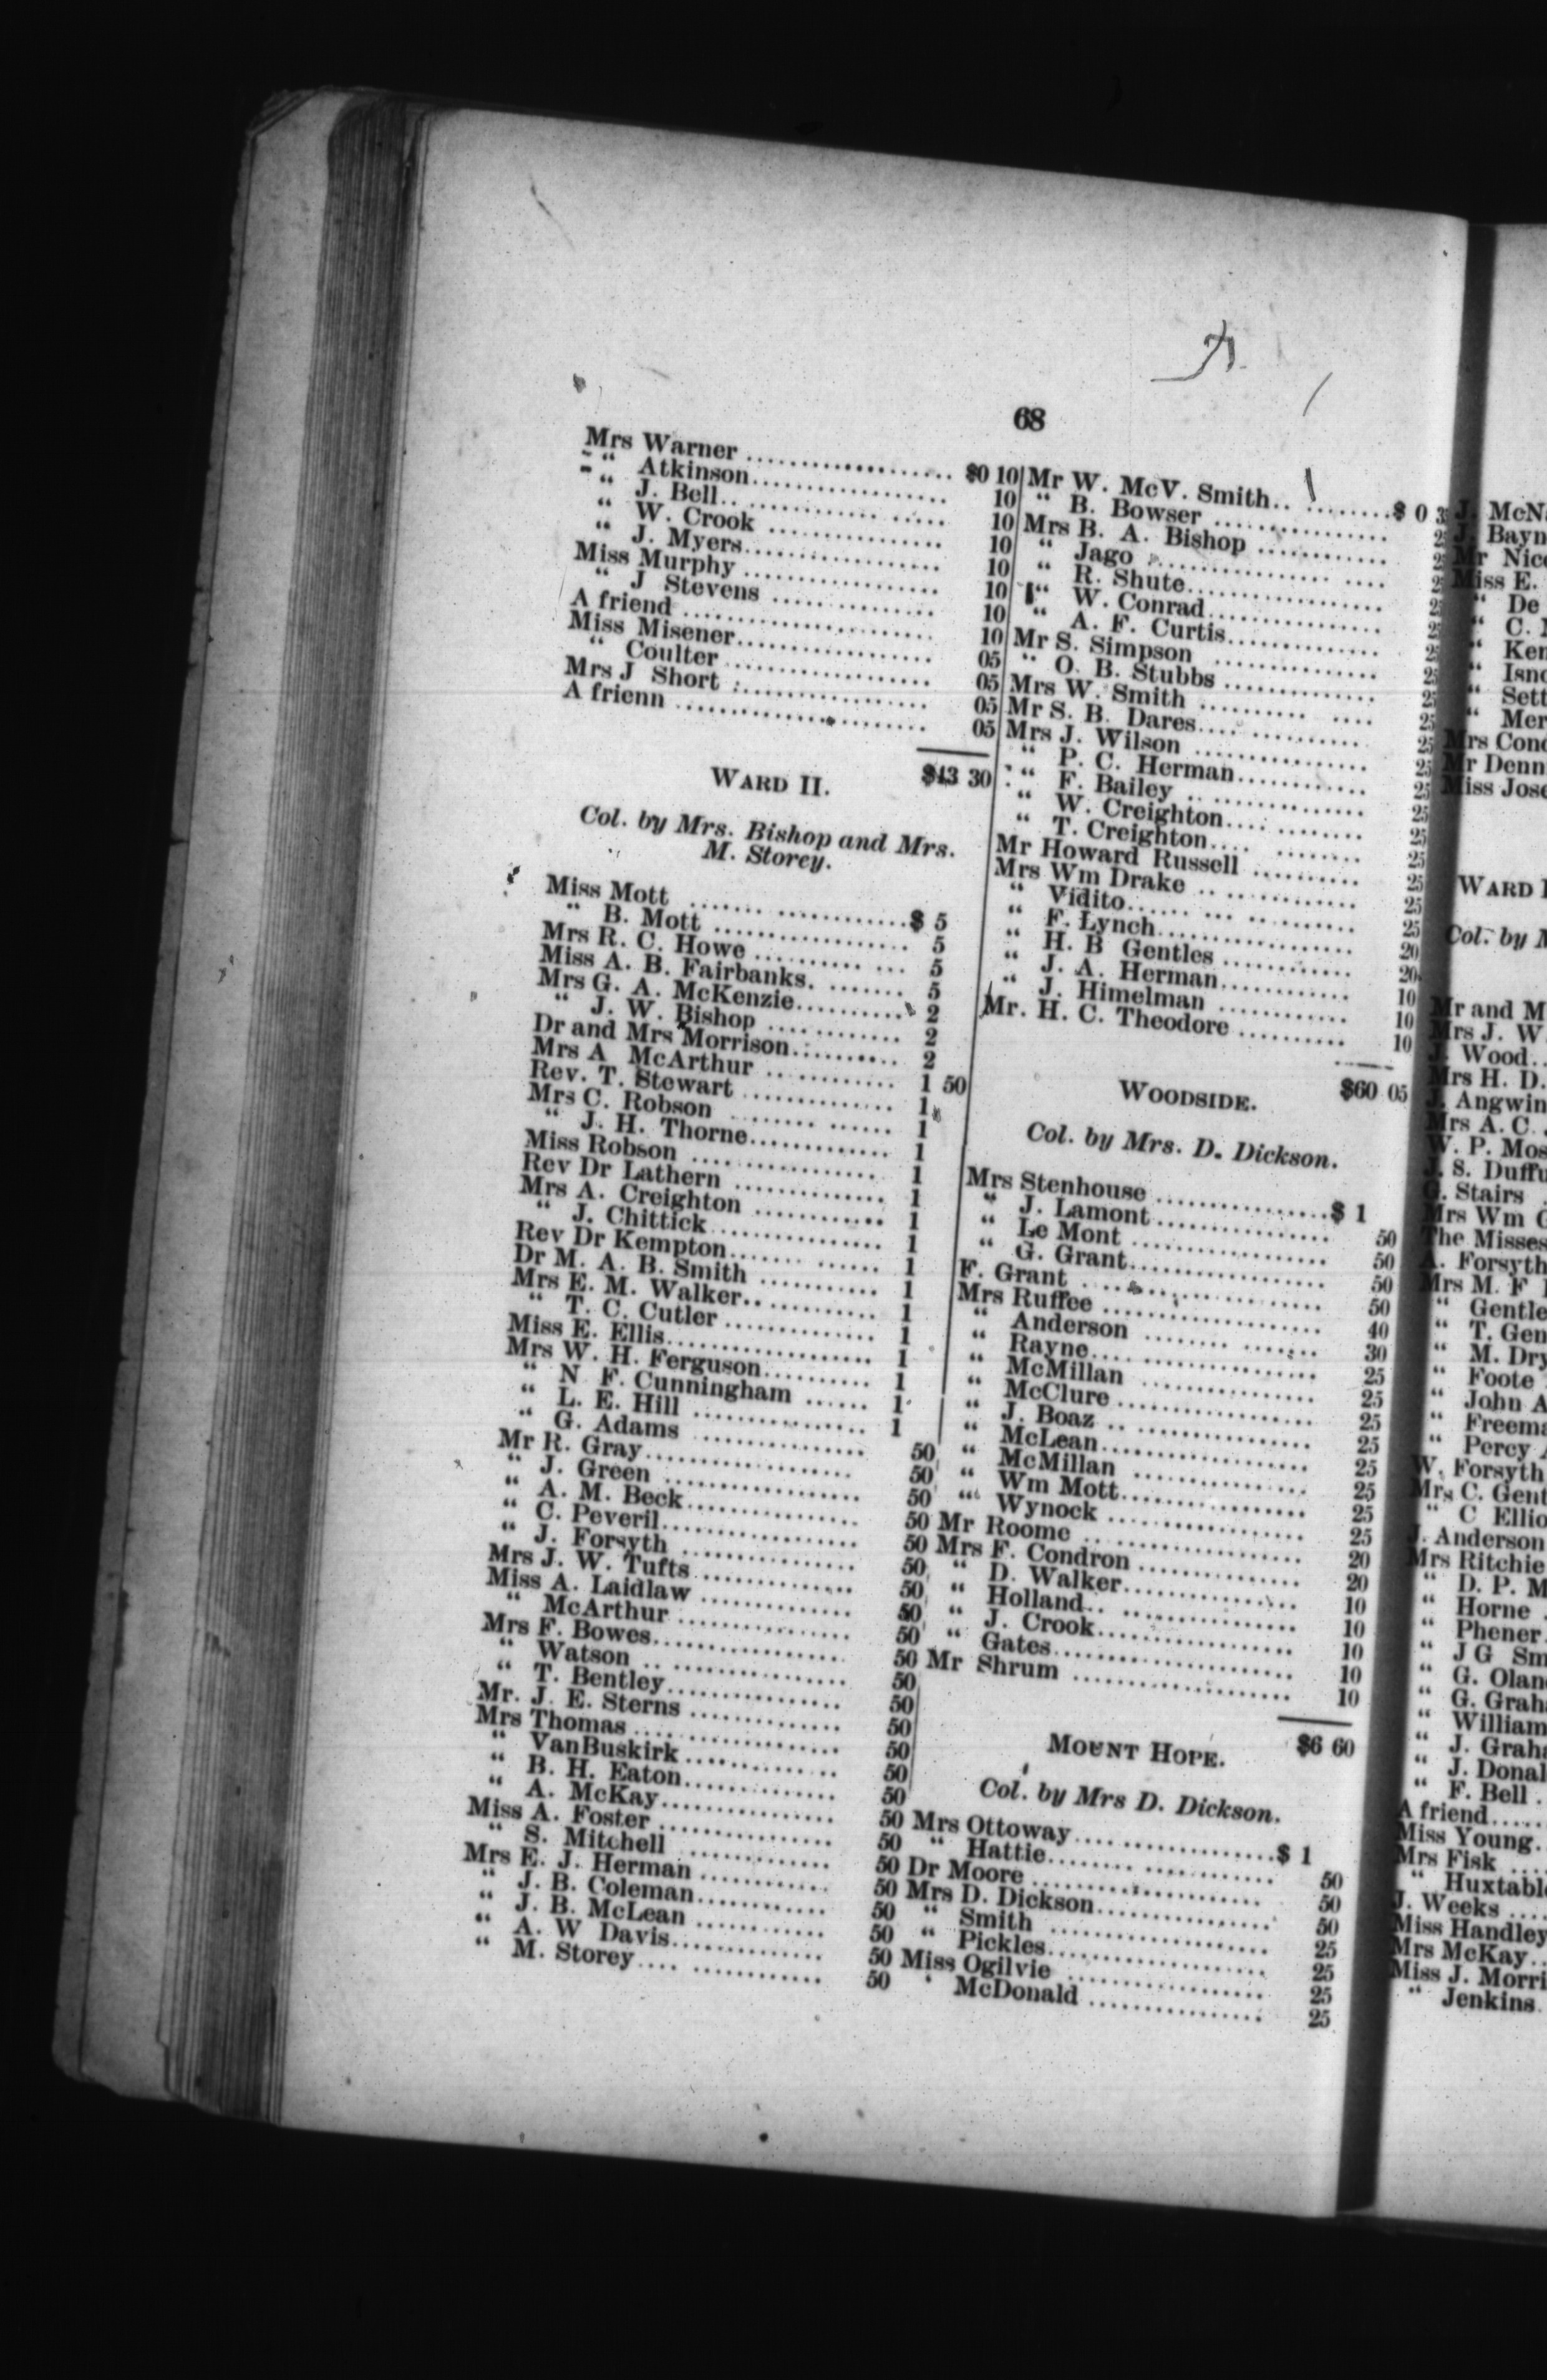 68
Mrs Warner .................... $0 10
“ Atkinson.................... 10
“ J. Bell.. ............... ..... 10
“ W. Crook .................. 10
“ J. Myers.................... 10
Miss Murphy .................... 10
“ J Stevens ................. 10
A friend ......................... 10
Miss Misener.................... 05
“ Coulter .................... 05
Mrs J Short .................... 05
A frienn ......................... 05
$13 30
WARD II.
Col. by Mrs. Bishop and Mrs.
M. Storey.
Miss Mott ....... .............$ 5
“ B. Mott .................... 5
Mrs R. C. Howe .......... ... 5
Miss A. B. Fairbanks. ........ 5
Mrs G. A. McKenzie........... 2
“ J. W. Bishop .... ......... 2
Dr and Mrs Morrison........... 2
Mrs A McArthur ............. 1 50
Rev. T. Stewart ............... 1
Mrs C. Robson ......... ...... 1
“ J. H. Thorne............... 1
Miss Robson .................... 1
Rev Dr Lathern ................ 1
Mrs A. Creighton ............. 1
“ J. Chittick.................. 1
Rev Dr Kempton....... ...... 1
Dr M. A. B. Smith ............ 1
Mrs E. M. Walker.............. 1
“ T. C. Cutler ............... 1
Miss E. Ellis..................... 1
Mrs W. H. Ferguson........... 1
“ N F. Cunningham ...... 1
“ L. E. Hill .................. 1
“ G. Adams .................. 50
Mr R. Gray...................... 50
“ J. Green .................... 50
“ A. M. Beck.................. 50
“ C. Peveril................... 50
“ J. Forsyth .................. 50
Mrs J. W. Tufts................. 50
Miss A. Laidlaw ............... 50
“ McArthur .................. 50
Mrs F. Bowes.................... 50
“ Watson .. .................. 50
“ T. Bentley.................. 50
Mr. J. E. Sterns ............... 50
Mrs Thomas ..................... 50
“ VanBuskirk................ 50
“ B. H. Eaton................ 50
“ A. McKay.................. 50
Miss A. Foster .................. 50
“ S. Mitchell ................. 50
Mrs E. J. Herman ............. 50
“ J. B. Coleman............. 50
“ J. B. McLean ............. 50
“ A. W Davis................ 50
“ M. Storey.... ............. 50
Mr W. McV. Smith.. ........$ 0 3
“ B. Bowser ..................
Mrs B. A. Bishop .............
“ Jago .................. ....
“ R. Shute....................
“ W. Conrad..................
“ A. F. Curtis................
Mr S. Simpson ................. 25
“ O. B. Stubbs .............. 25
Mrs W. Smith .......... .... 25
Mr S. B. Dares.... ........... 25
Mrs J. Wilson .................. 25
“ P. C. Herman............. 25
“ F. Bailey .. ............... 25
“ W. Creighton.... ......... 25
“ T. Creighton.... ......... 25
Mr Howard Russell ........... 25
Mrs Wm Drake .. ............. 25
“ Vidito...... ... .......... 25
“ F. Lynch.................... 20
“ H. B Gentles ............. 20
“ J. A. Herman............. 10
“ J. Himelman ............. 10
Mr. H. C. Theodore ........... 10
$60 05
WOODSIDE.
Col. by Mrs. D. Dickson.
Mrs Stenhouse .................$ 1
“ J. Lamont.................. 50
“ Le Mont .................... 50
“ G. Grant.................... 50
F. Grant ......................... 50
Mrs Ruffee ...................... 40
“ Anderson ........ ........ 30
“ Rayne.... .................. 25
“ McMillan .................. 25
“ McClure .................... 25
“ J. Boaz .. .................. 25
“ McLean..................... 25
“ McMillan .................. 25
“ Wm Mott................... 25
“ Wynock .................... 25
Mr Roome ....................... 20
Mrs F. Condron ................ 20
“ D. Walker.................. 10
“ Holland.. .................. 10
“ J. Crook.................... 10
“ Gates........................ 10
Mr Shrum ...................... 10
$6 60
MOUNT HOPE.
Col. by Mrs D. Dickson.
Mrs Ottoway.... ...............$ 1
“ Hattie........ ............. 50
Dr Moore ........................ 50
Mrs D. Dickson.................. 50
“ Smith ....................... 25
“ Pickles...................... 25
Miss Ogilvie .................... 25
‘ McDonald .................. 25
J. McN
J. Bayn
Mr Nic
Miss E.
“ De
“ C.
“ Ken
“ Isn
“ Sett
“ Mer
Mrs Con
Mr Denn
Miss Jos
WARD
Col. by
Mr and M
Mrs J. W
J. Wood..
Mrs H. D.
J. Angwin
Mrs A. C.
W. P. Mos
J. S. Duffu
G. Stairs
Mrs Wm
The Misses
A. Forsyth
Mrs M. F
“ Gentle
“ T. Gen
“ M. Dry
“ Foote
“ John A
“ Freema
“ Percy
W. Forsyth
Mrs C. Gent
“ C Ellio
J. Anderson
Mrs Ritchie
“ D. P. M
“ Horne
“ Phener
“ J G Sm
“ G. Olan
“ G. Grah
“ William
“ J. Grah
“ J. Donal
“ F. Bell .
A friend.....
Miss Young.
Mrs Fisk ....
“ Huxtabl
J. Weeks ....
Miss Handley
Mrs McKay..
Miss J. Morri
“ Jenkins.